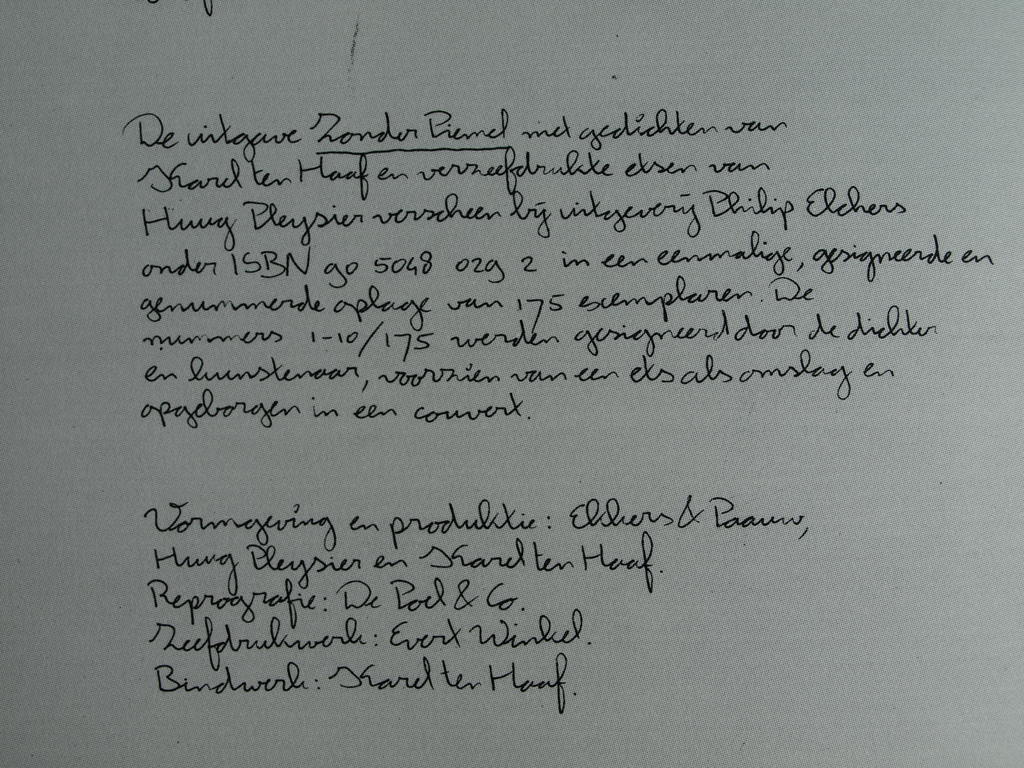 De uitgave Zonder Piemel met gedichten van
Karel ten Haaf en verzeefdrukte etsen van
Huug Pleysier verscheen bij uitgeverij Philip Elchers
onder ISBN 90 5048 029 2 in een eenmalige, gesigneerde en
genummerde oplage van 175 exemplaren. De
nummers 1-10/175 werden gesigneerd door de dichter
en kunstenaar, voorzien van een ets als omslag en
opgeborgen in een couvert.
Vormgeving en produktie: Elkhers & Paauw,
Huug Pleysier en Karel ten Haaf.
Reprografie: De Poel & Co.
Zeefdrukwerk: Evert Winkel.
Bindwerk: Karel ten Haaf.